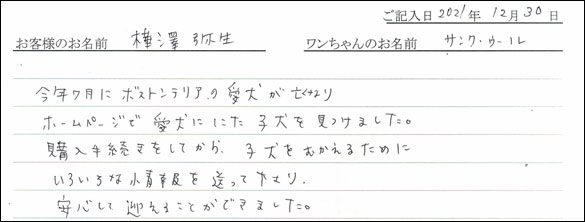 ご記入日 2021年 12月 30日
お客様のお名前 樺澤 弥生 ワンちゃんのお名前 サンク・ウール
今年7月に ボストンテリアの 愛犬が 亡くなり
ホームページで 愛犬に にた 子犬を 見つけました。
購入手続きをしてから、子犬を むかえるために
いろいろな 情報を 送って下さり、
安心して 迎えることができました。